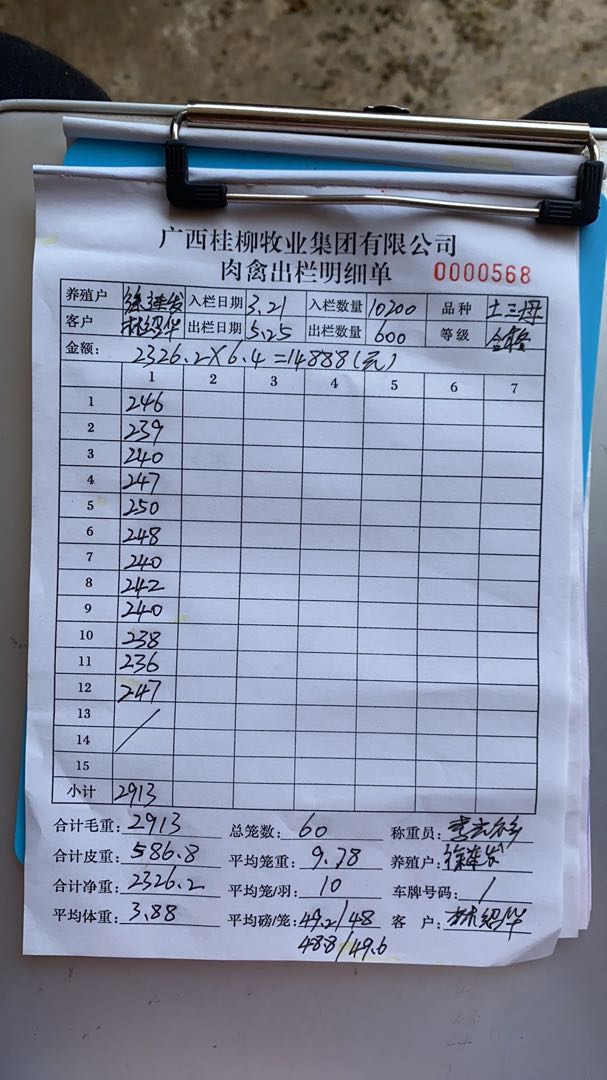 广西桂柳牧业集团有限公司
肉禽出栏明细单 0000568
养殖户 徐连发 入栏日期 3.21 入栏数量 10200 品种 土三母
客户 林绍华 出栏日期 5.25 出栏数量 600 等级 合格
金额: 2326.2×6.4=14888(元)
1 2 3 4 5 6 7
1 246
2 239
3 240
4 247
5 250
6 248
7 240
8 242
9 240
10 238
11 236
12 247
13
14
15
小计 2913
合计毛重: 2913 总笼数: 60 称重员:
合计皮重: 586.8 平均笼重: 9.78 养殖户: 徐连发
合计净重: 2326.2 平均笼/羽: 10 车牌号码: /
平均体重: 3.88 平均磅/笼: 49.2/48 客 户: 林绍华
48.8/49.6